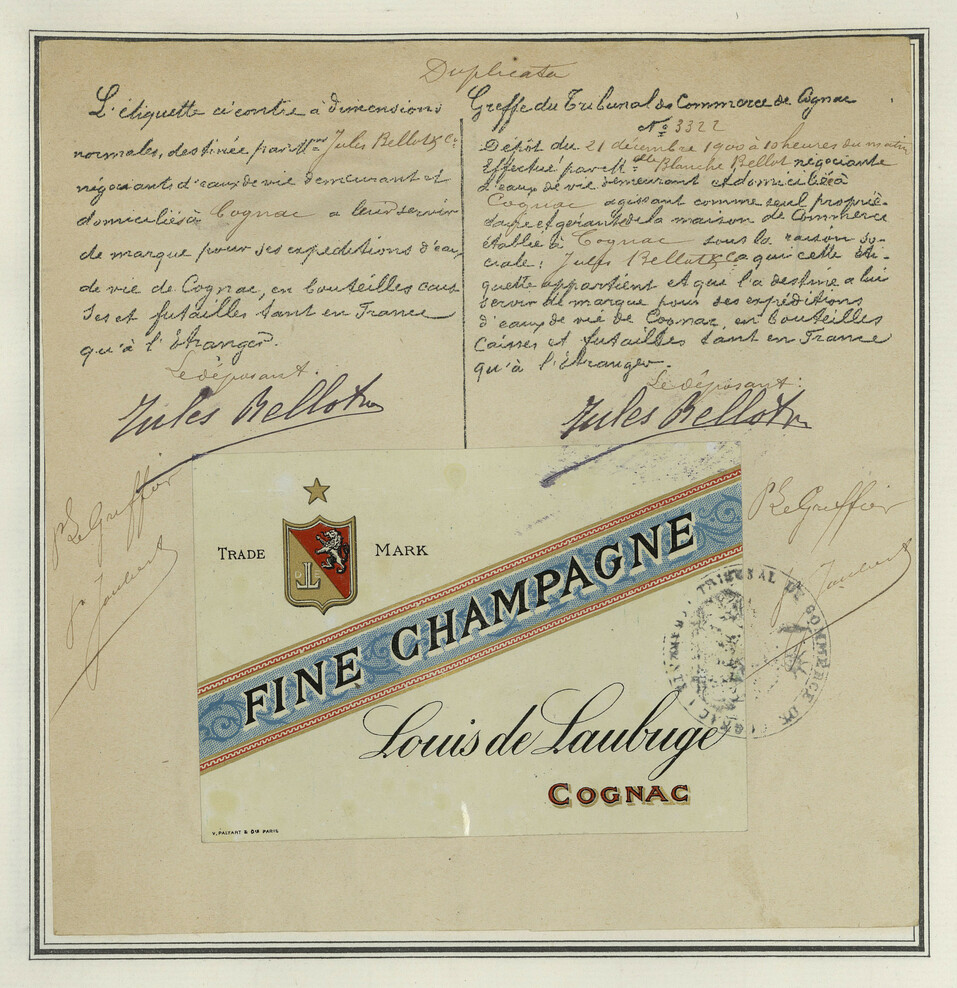 Duplicata
L'étiquette ci contre à dimensions
normales, destinée par Mrs Jules Bellot & Cie
négociants d'eaux de vie demeurant et
domiciliés à Cognac a leur servir
de marque pour ses expéditions d'eaux
de vie de Cognac, en bouteilles cais
ses et futailles tant en France
qu'à l'étranger.
Le déposant.
Jules Bellot &
Pr Le Greffier
Greffe du Tribunal de Commerce de Cognac
No 3322
Dépôt du 21 décembre 1900 à 10 heures du matin
Effectué par Mlle Blanche Bellot négociante
d'eaux de vie demeurant et domiciliée à
Cognac agissant comme seul proprié-
taire et gérante de la maison de Commerce
établie à Cognac sous la raison so-
ciale: Jules Bellot & Ca qui cette éti-
quette appartient et que l'a destiné a lui
servir de marque pour ses expéditions
d'eaux de vie de Cognac, en bouteilles
Caisses et futailles tant en France
qu'à l'étranger.
Le déposant:
Jules Bellot &
Pr Le Greffier
TRADE MARK
FINE CHAMPAGNE
Louis de Laubuge
COGNAC
V. PALYART & Fils PARIS
TRIBUNAL DE COMMERCE DE COGNAC